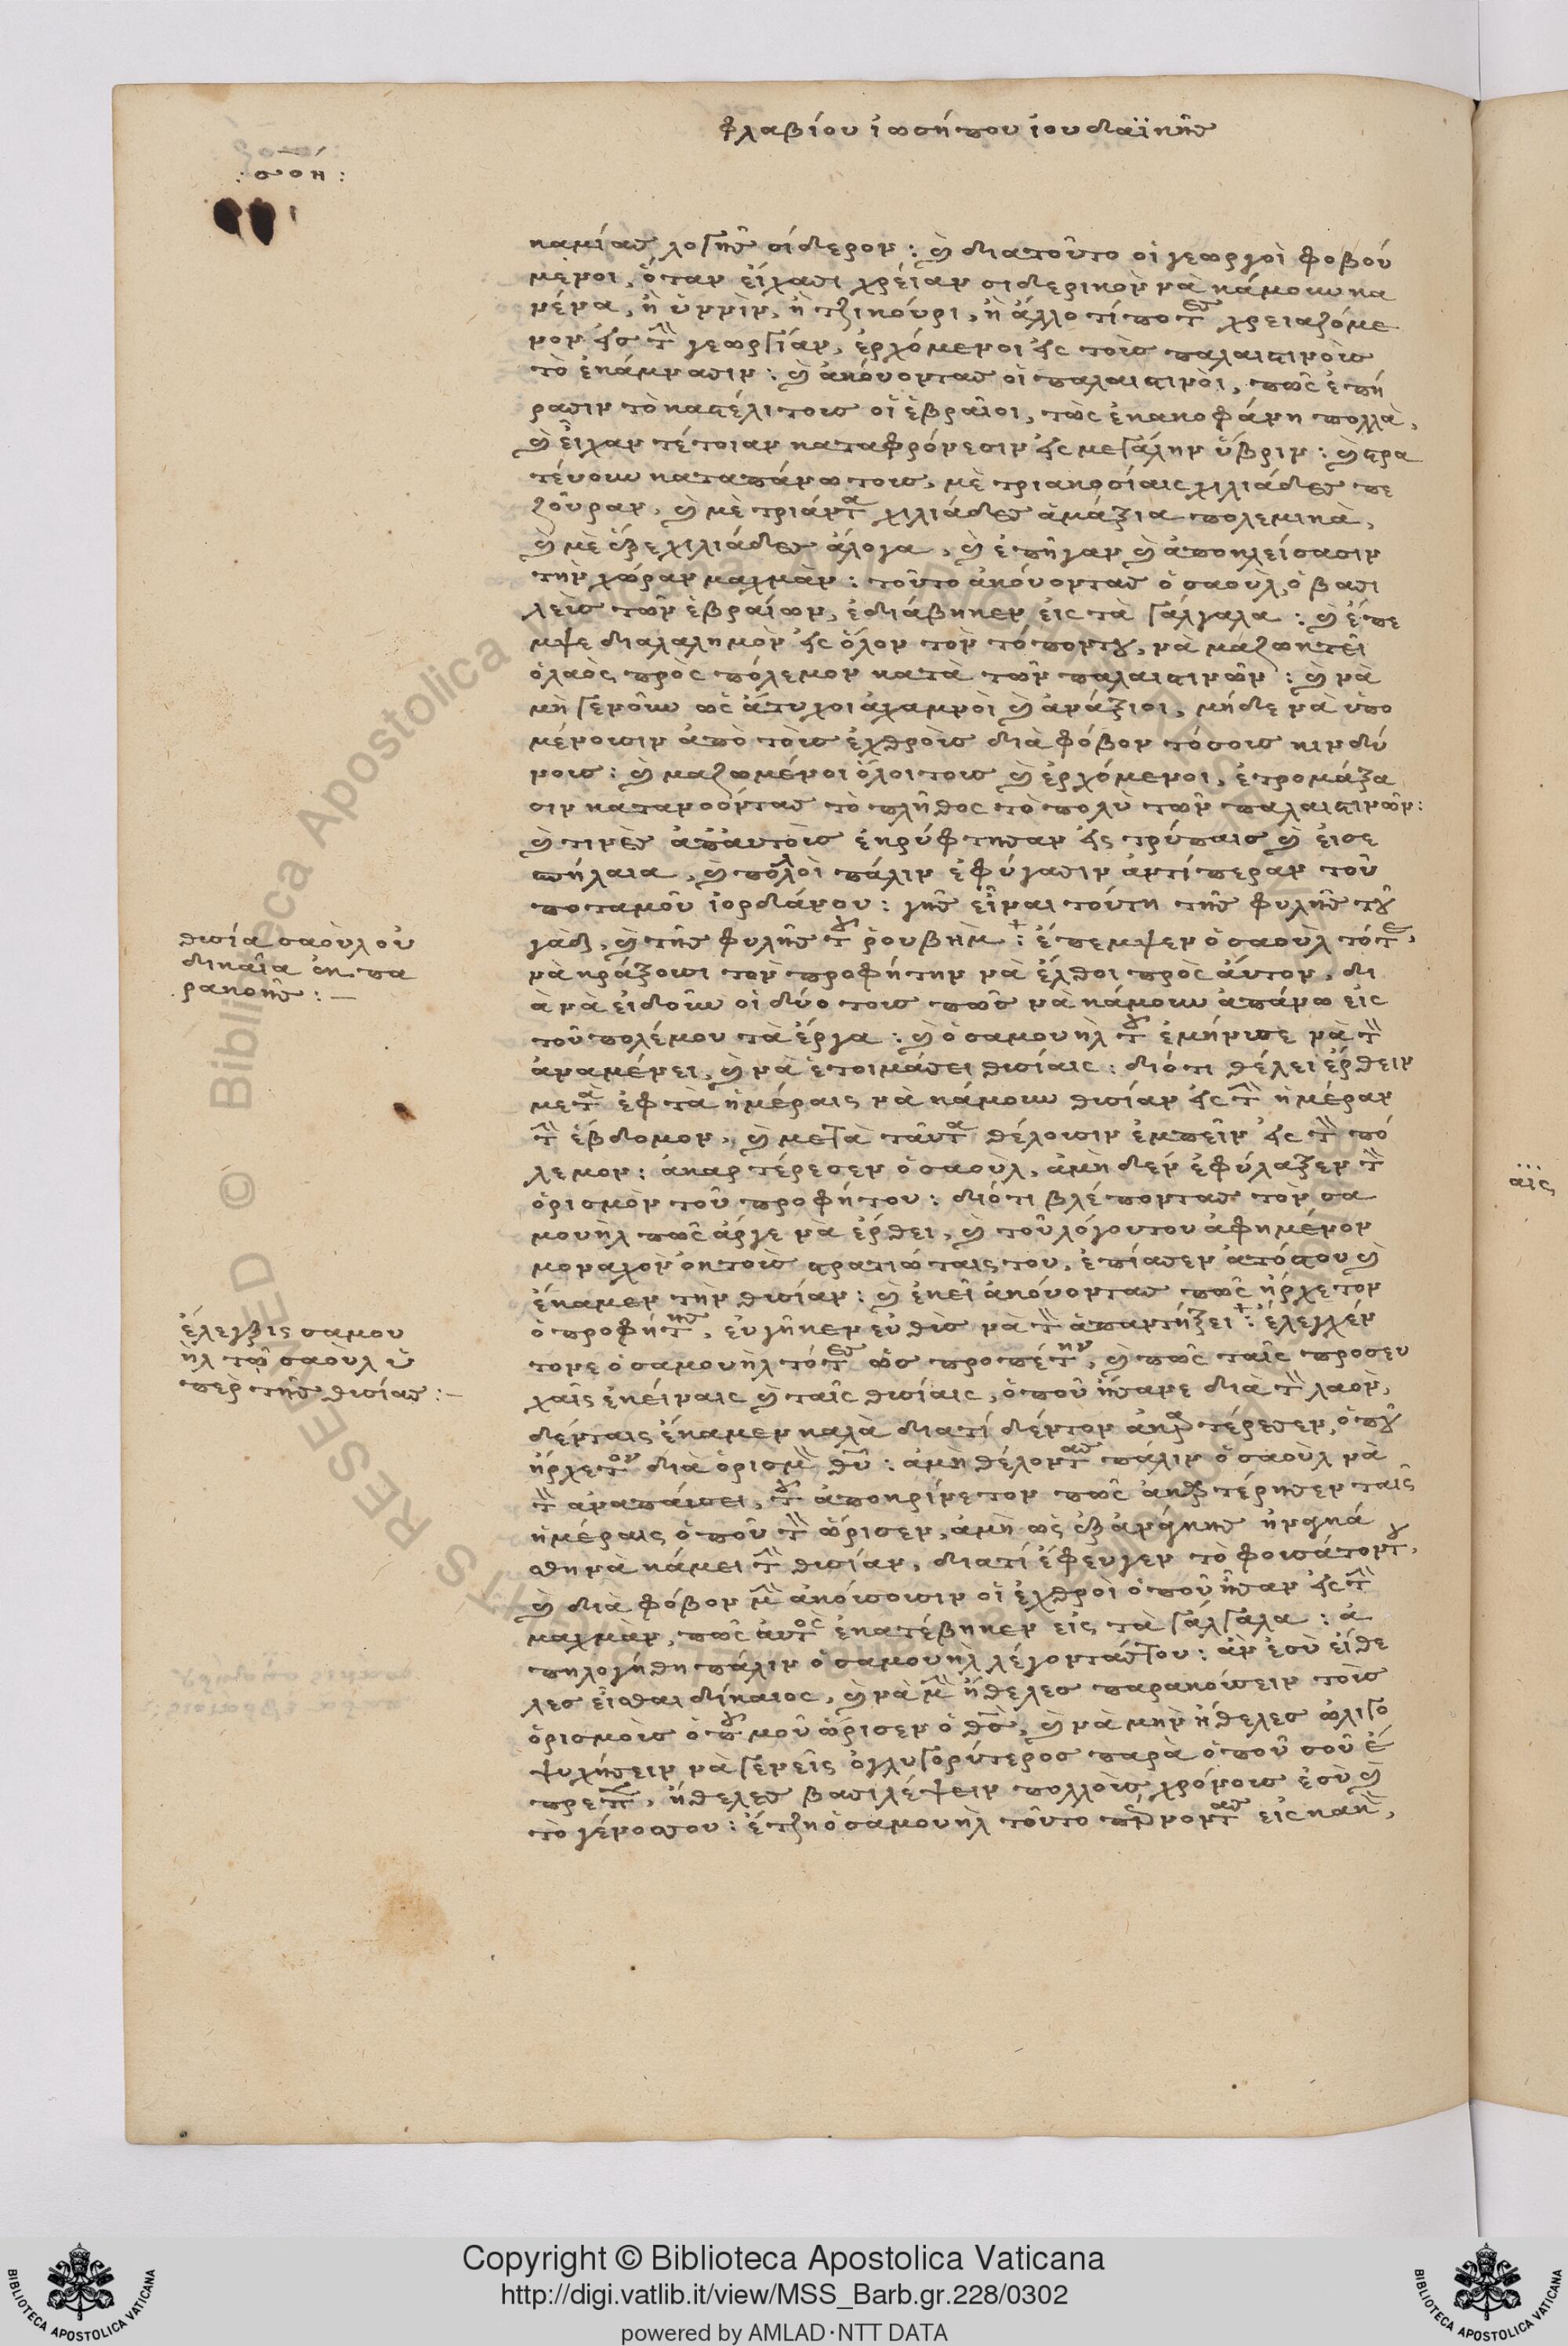 φλαβίου ἰωσήπου ἰουδαϊκῆς
: σοη :
καμίας λογῆς σίδερον : καὶ διατοῦτο οἱ γεωργοὶ φοβού
μενοι, ὅταν εἴχασι χρείαν σιδερικὸν νὰ κάμουν κα
νένα, ἢ ὑννὶν, ἢ τζικούρι, ἢ ἄλλο τίποτες χρειαζόμε
νον εἰς τὴν γεωργίαν, ἐρχόμενοι εἰς τοὺς παλαιστινοὺς
τὸ ἐκάμνασιν : καὶ ἀκούοντας οἱ παλαιστινοὶ, πῶς ἐπή
ρασιν τὸ καστέλι τους οἱ ἑβραῖοι, τὼς ἐκακοφάνη πολλὰ,
καὶ εἶχαν τέτοιαν καταφρόνεσιν εἰς μεγάλην ὕβριν : καὶ στρα
τεύουν καταπάνω τους, μὲ τριακοσίαις χιλιάδες πε
ζούραν, καὶ μὲ τριάντα χιλιάδες ἁμάξια πολεμικὰ,
καὶ μὲ ἑξε χιλιάδες ἄλογα, καὶ ἐπῆγαν καὶ ἀποκλείσασιν
τὴν χώραν μαχμὰν : τοῦτο ἀκούοντας ὁ σαοὺλ, ὁ βασι
λεὺς τῶν ἑβραίων, ἐδιάβηκεν εἰς τὰ γάλγαλα : καὶ ἔπε
μψε διαλαλημὸν εἰς ὅλον τὸν τόπον του, νὰ μαζωκτεῖ
ὁ λαὸς πρὸς πόλεμον κατὰ τῶν παλαιστινῶν : καὶ νὰ
μὴ γενοῦν ὡς ἄτυχοι ἀχαμνοὶ καὶ ἀνάξιοι, μήδε νὰ ὑπο
μένουσιν ἀπὸ τοὺς ἐχθροὺς διὰ φόβον τόσους κινδύ
νους : καὶ μαζωμένοι ὅλοι τους καὶ ἐρχόμενοι, ἐτρομάξα
σιν κατανοόντας τὸ πλῆθος τὸ πολὺ τῶν παλαιστινῶν :
καὶ τινὲς ἀπαυτοὺς ἐκρύφτησαν εἰς τρύπαις καὶ εἰσε
πήλαια, καὶ πολλοὶ πάλιν ἐφύγασιν ἀντίπεραν τοῦ
ποταμοῦ ἰορδάνου : γῆς εἶναι τούτη τῆς φυλῆς τοῦ
γὰδ, καὶ τῆς φυλῆς τοῦ ῥουβὴμ : ἔπεμψεν ὁ σαοὺλ τότες,
νὰ κράξουσι τὸν προφήτην νὰ ἔλθοι πρὸς αὐτον, δι
ὰ νὰ εἰδοῦν οἱ δύο τους πῶς νὰ κάμουν ἀπάνω εἰς
τοῦ πολέμου τὰ ἔργα : καὶ ὁ σαμουὴλ τοῦ ἐμήνυσε νὰ τὸν
ἀναμένει, καὶ νὰ ἑτοιμάσει θυσίαις : διότι θέλει ἔρθειν
μετὰ ἑφτὰ ἡμέραις νὰ κάμουν θυσίαν εἰς τὴν ἡμέραν
τὴν ἕβδομον, καὶ μετὰ ταῦτα θέλουσιν ἐμπεῖν εἰς τὸν πό
λεμον : ἀκαρτέρεσεν ὁ σαοὺλ, ἀμὴ δὲν ἐφύλαξεν τὸν
ὁρισμὸν τοῦ προφήτου : διότι βλέποντας τὸν σα
μουὴλ πῶς ἄργε νὰ ἔρθει, καὶ τοῦ λόγου του ἀφημένον
μοναχὸν ἐκ τοὺς στρατιώταις του, ἐπίασεν ἀτόσου καὶ
ἔκαμεν τὴν θυσίαν : καὶ ἐκεῖ ἀκούοντας πῶς ἤρχετον
ὁ προφήτης, εὐγῆκεν εὐθὺς νὰ τὸν ἀπαντήξει : ἐλεγχέν
τονε ὁ σαμουὴλ τότες ὡς προπέτην, καὶ πῶς ταῖς προσευ
χαῖς ἐκείναις καὶ ταῖς θυσίαις, ὁποῦ ἦσανε διὰ τὸν λαὸν,
δένταις ἔκαμεν καλὰ διατί δέντον ἀκαρτέρεσεν, ὁποῦ
ἤρχετον διὰ ὁρισμὸν θεοῦ : ἀμὴ θέλοντας πάλιν ὁ σαοὺλ νὰ
τὸν ἀναπάψει, τοῦ ἀποκρίνετον πῶς ἀκαρτέρησεν ταῖς
ἡμέραις ὁποῦ τὸν ὥρισεν, ἀμὴ ὡς ἐξ ἀνάγκης ἠναγκά
σθη νὰ κάμει τὴν θυσίαν, διατί ἔφευγεν τὸ φουσάτον του,
καὶ διὰ φόβον μὴν ἀκούσουσιν οἱ ἐχθροὶ ὁποῦ ἦσαν εἰς τὴν
μαχμὰν, πῶς αὐτὸς ἐκατέβηκεν εἰς τὰ γάλγαλα : ἀ
πηλογήθη πάλιν ὁ σαμουὴλ λέγοντάς του : ἂν ἐσὺ εἴθε
λες εἶσθαι δίκαιος, καὶ νὰ μὴν ἤθελες παρακούσειν τοὺς
ὁρισμοὺς ὁποῦ μοῦ ὥρισεν ὁ θεὸς, καὶ νὰ μὴν ἤθελες ὠλιγο
ψυχήσειν νὰ γενεῖς ὀγλυγορύτερος παρὰ ὁποῦ σοῦ ἔ
πρεπε, ἤθελες βασιλέψειν πολλοὺς χρόνους ἐσὺ καὶ
τὸ γένος σου : ἔτζη ὁ σαμουὴλ τοῦτο
θυσία σαοὺλ οὐ
δικαῖα ἐκ πα
ρακοῆς : —
ἔλεγξις σαμου
ὴλ τῷ σαοὺλ ὑ
πὲρ τῆς θυσίας : —
αἰς
Copyright © Biblioteca Apostolica Vaticana
http://digi.vatlib.it/view/MSS_Barb.gr.228/0302
powered by AMLAD · NTT DATA
BIBLIOTECA APOSTOLICA VATICANA
BIBLIOTECA APOSTOLICA VATICANA